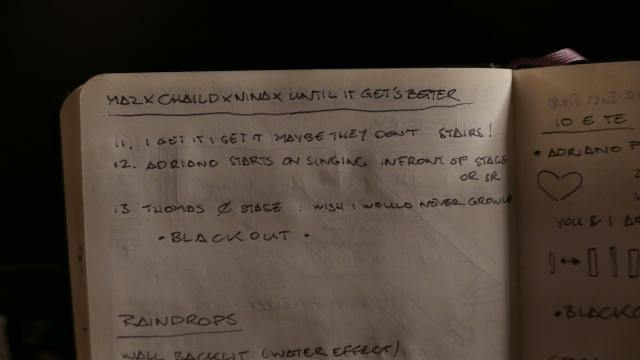 MAZ X CHAILD X NINA X UNTIL IT GET'S BETTER
11. I GET IT I GET IT MAYBE THEY DON'T STAIRS!
12. ADRIANO STARTS ON SINGING IN FRONT OF STAGE
OR SR
13 THOMAS Ø STAGE : WISH I WOULD NEVER GROW UP
• BLACKOUT •
RAINDROPS
WALL BACKLIT (WATER EFFECT)
IO E TE
• ADRIANO
YOU & I
• BLACKO